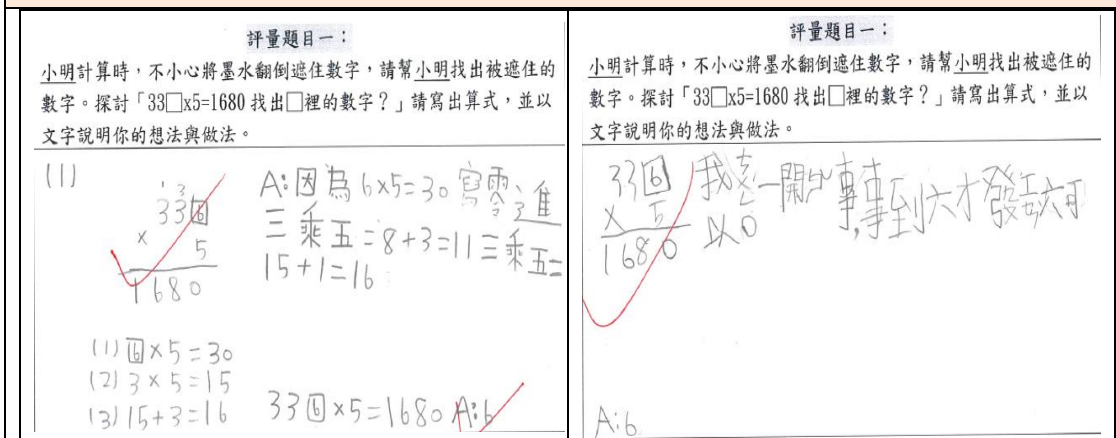 評量題目一：
小明計算時，不小心將墨水翻倒遮住數字，請幫小明找出被遮住的
數字。探討「33□x5=1680 找出□裡的數字？」請寫出算式，並以
文字說明你的想法與做法。
(1)
1 3
33 6
× 5
1680
A:因為6×5=30寫零進
三乘五=8+3=11三乘五=
15+1=16
(1) 6×5=30
(2) 3×5=15
(3) 15+3=16
33 6×5=1680 A:6
評量題目一：
小明計算時，不小心將墨水翻倒遮住數字，請幫小明找出被遮住的
數字。探討「33□x5=1680 找出□裡的數字？」請寫出算式，並以
文字說明你的想法與做法。
33 6
× 5
1680
我 一開 到六才發 六可
以0
A:6